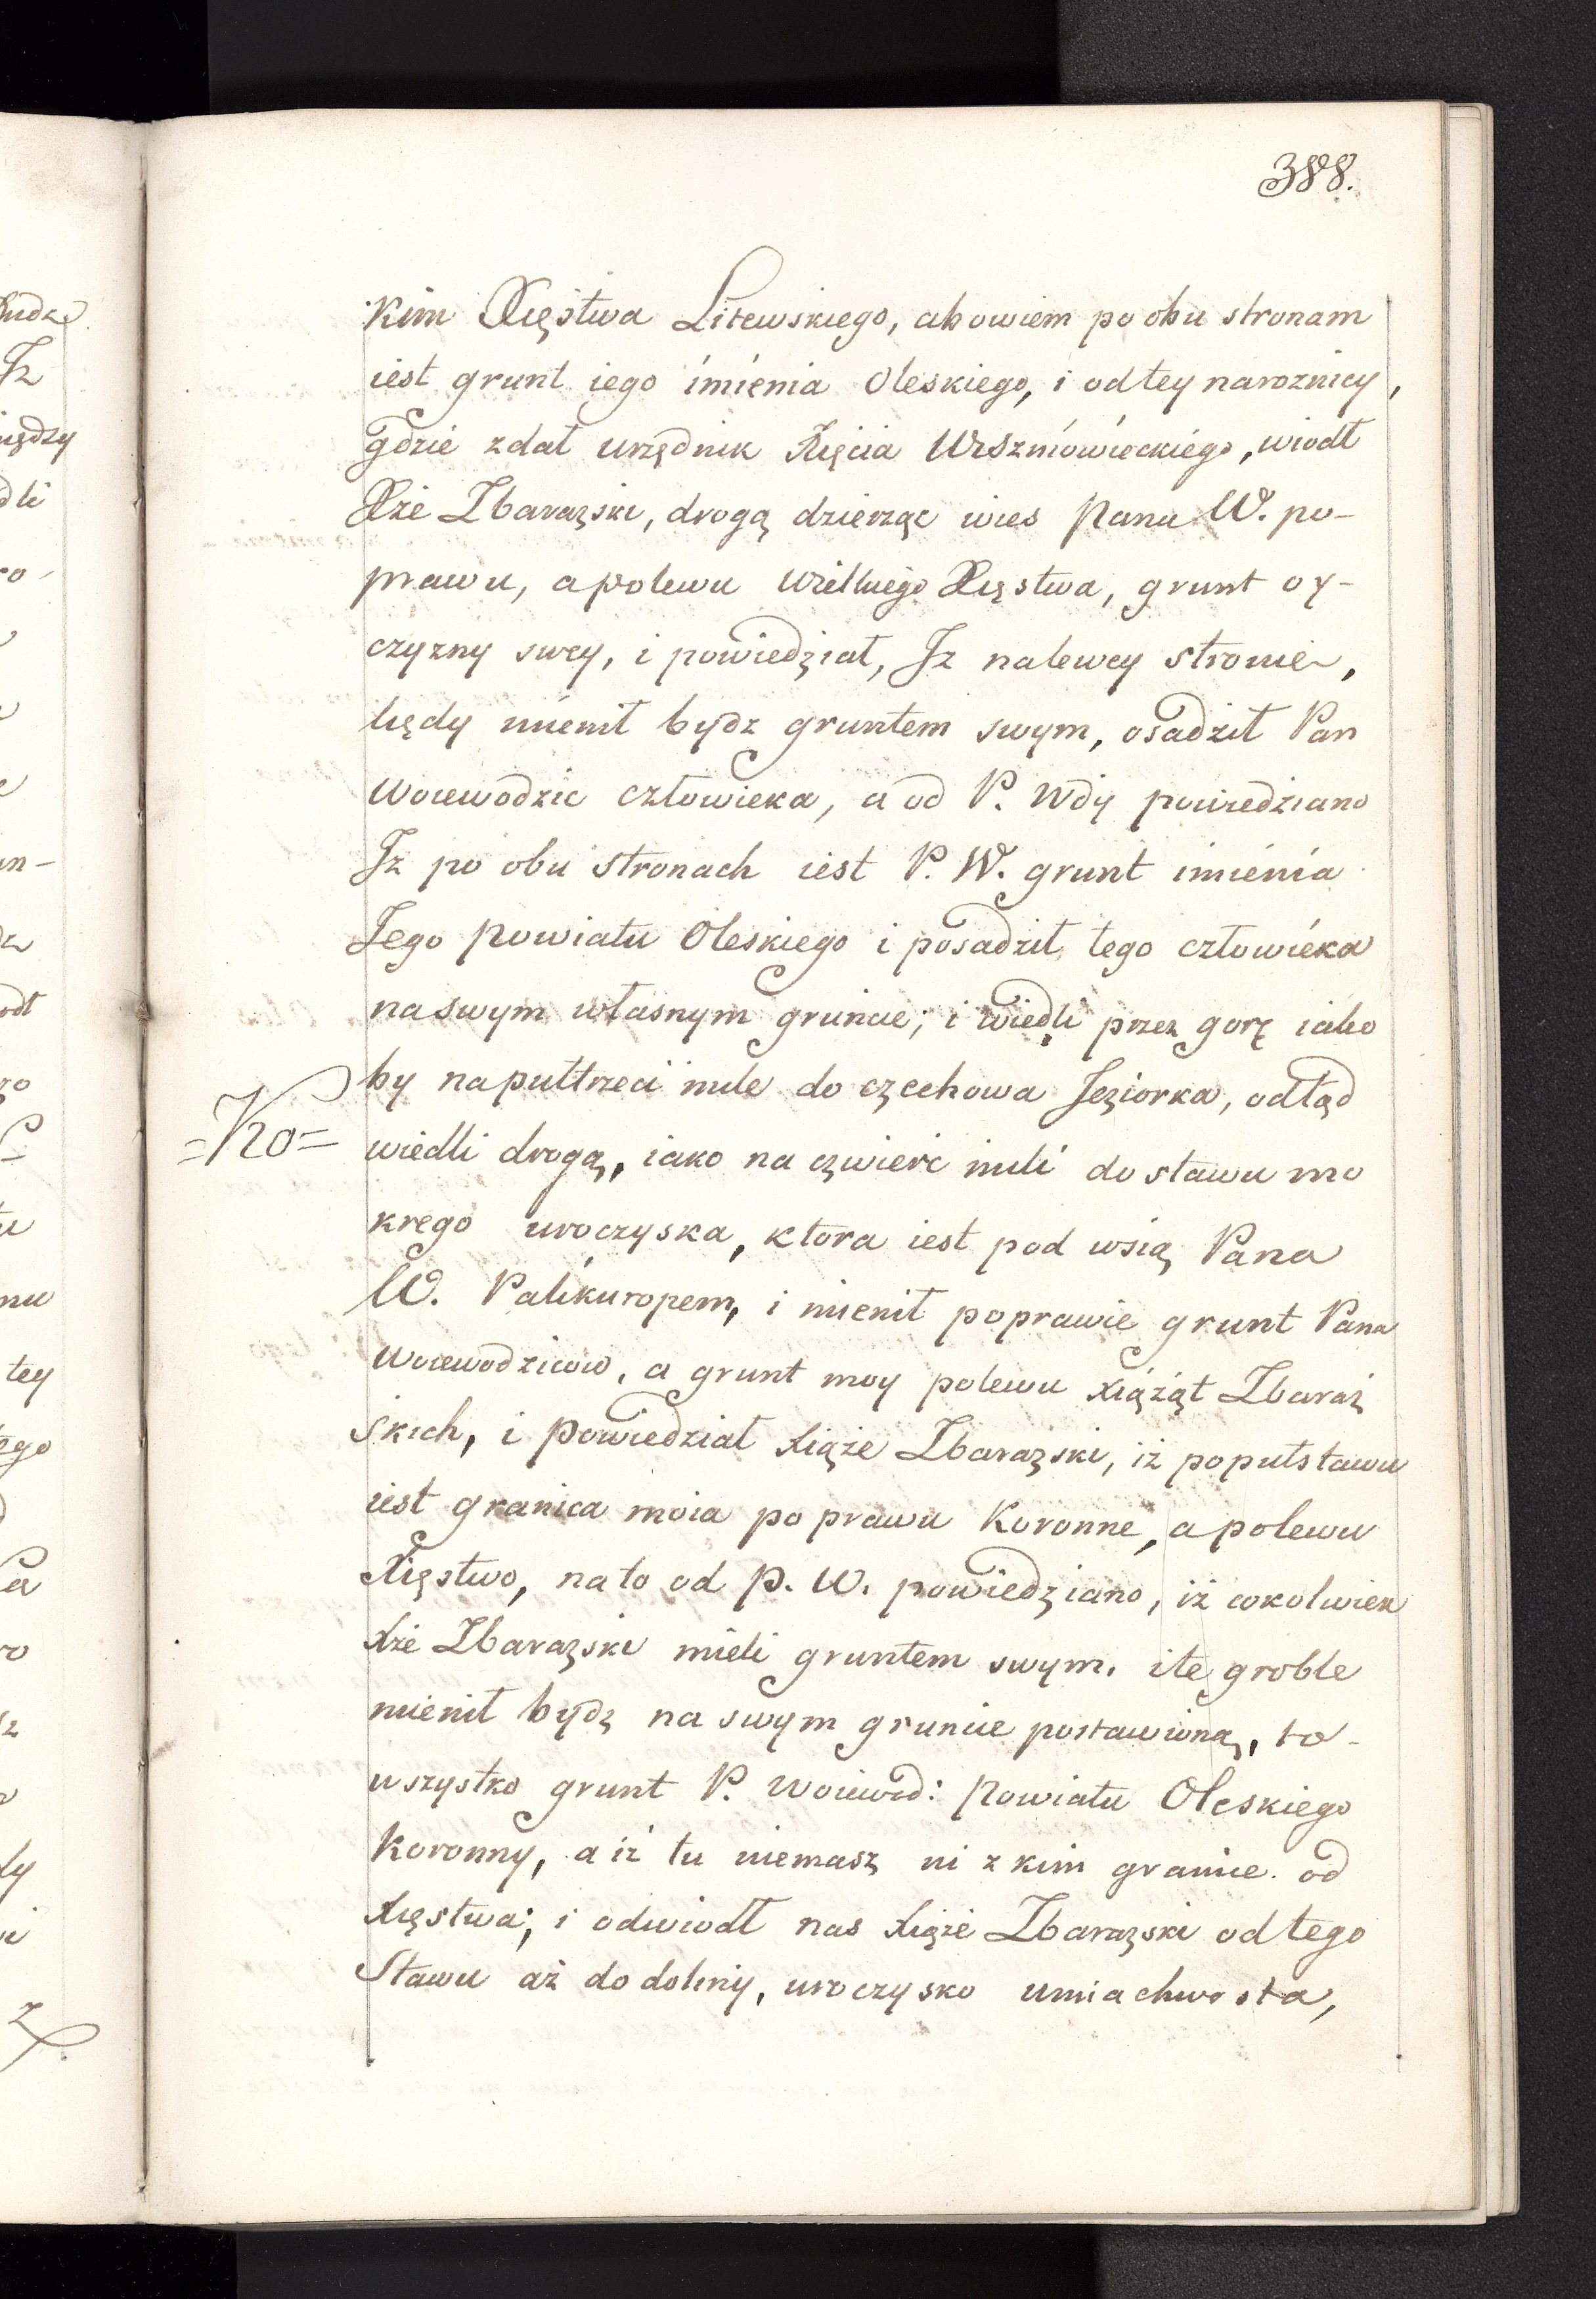 388.
Kim Xięstwa Litewskiego, abowiem po obu stronam
iest grunt iego imienia Oleskiego, i odtey naroznicy,
gdzie zdał urzędnik Xięcia Wiszniowieckiego, wiodł
Xże Zbarazski, drogą dzierząc wies Pana W. po-
prawu, apolewu Wielkiego Xięstwa, grunt oy-
czyzny swey, i powiedział, Jz nalewey stronie,
kędy mienił bydz gruntem swym, osadził Pan
Woiewodzic człowieka, a od P. Wdy powiedziano
Jz po obu stronach iest P. W. grunt imienia
Jego Powiatu Oleskiego i posadził tego człowieka
naswym własnym gruncie; i wiedli przez gorę iako
by napułtrzeci mile do Czechowa Jeziorka, odtąd
=Ko=
wiedli drogą, iako na czwierć mili do stawu mo
krego uroczyska, ktora iest pod wsią Pana
W. Palikuropem, i mienił poprawie grunt Pana
Woiewodzicow, a grunt moy polewu Xiążąt Zbaraż
skich, i powiedział Xiąże Zbarazski, iż popułstawu
iest granica moia po prawu Koronne, a polewu
Xięstwo, nato od P. W. powiedziano, iż cokolwiek
Xże Zbarazski mieli gruntem swym. ite groble
mienił bydz na swym gruncie postawioną, to-
wszystko grunt P. Woiewod: Powiatu Oleskiego
Koronny, a iż tu niemasz ni z kim granice. od
Xięstwa; i odwiodł nas Xiąże Zbarazski odtego
Stawu aż do doliny, uroczysko umiachwosta,